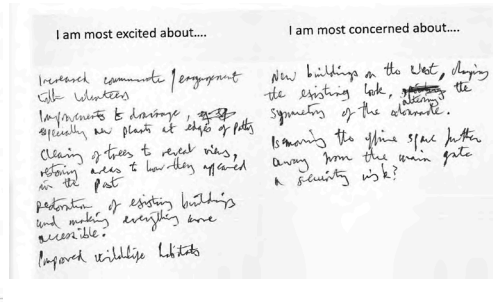 I am most excited about....
Increased community / engagement
with volunteers
Improvements to drainage,
especially new plants at edges of paths
Clearing of trees to reveal views,
restoring areas to how they appeared
in the past
Restoration of existing buildings
and making everything more
accessible.
Improved wildlife habitats
I am most concerned about....
New buildings on the West, changing
the existing look, altering the
symmetry of the colonnade.
Is moving the office space further
away from the main gate
a security risk?